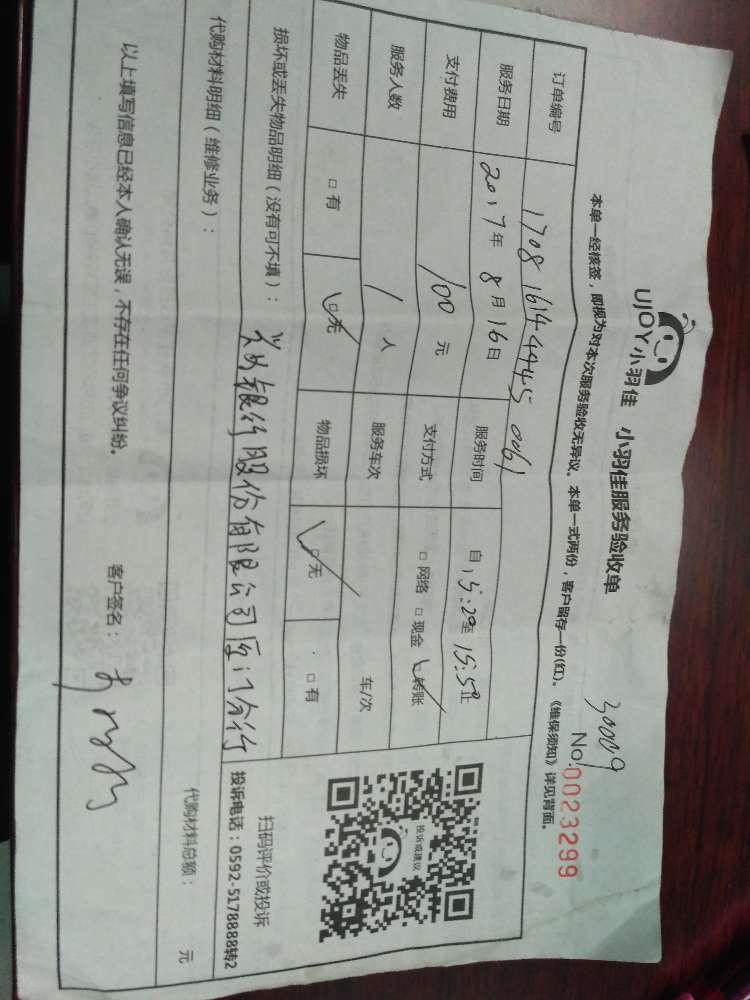 UJOY小羽佳 小羽佳服务验收单
30009
No:0023299
本单一经核签，即视为对本次服务验收无异议。本单一式两份，客户留存一份(红)。《维保须知》详见背面。
订单编号 1708 1614 4445 0061
服务日期 2017年 8月 16日 服务时间 自 15:20至 15:50止
支付费用 100 元 支付方式 □ 网络 □ 现金 □ 转账
服务人数 1 人 服务车次 车/次
物品丢失 □ 有 □ 无 物品损坏 □ 无 □ 有
投诉或建议
扫码评价或投诉
投诉电话：0592-5178888转2
损坏或丢失物品明细（没有可不填）：
银行股份有限公司厦门分行
代购材料明细（维修业务）：
代购材料总额： 元
以上填写信息已经本人确认无误，不存在任何争议纠纷。
客户签名：